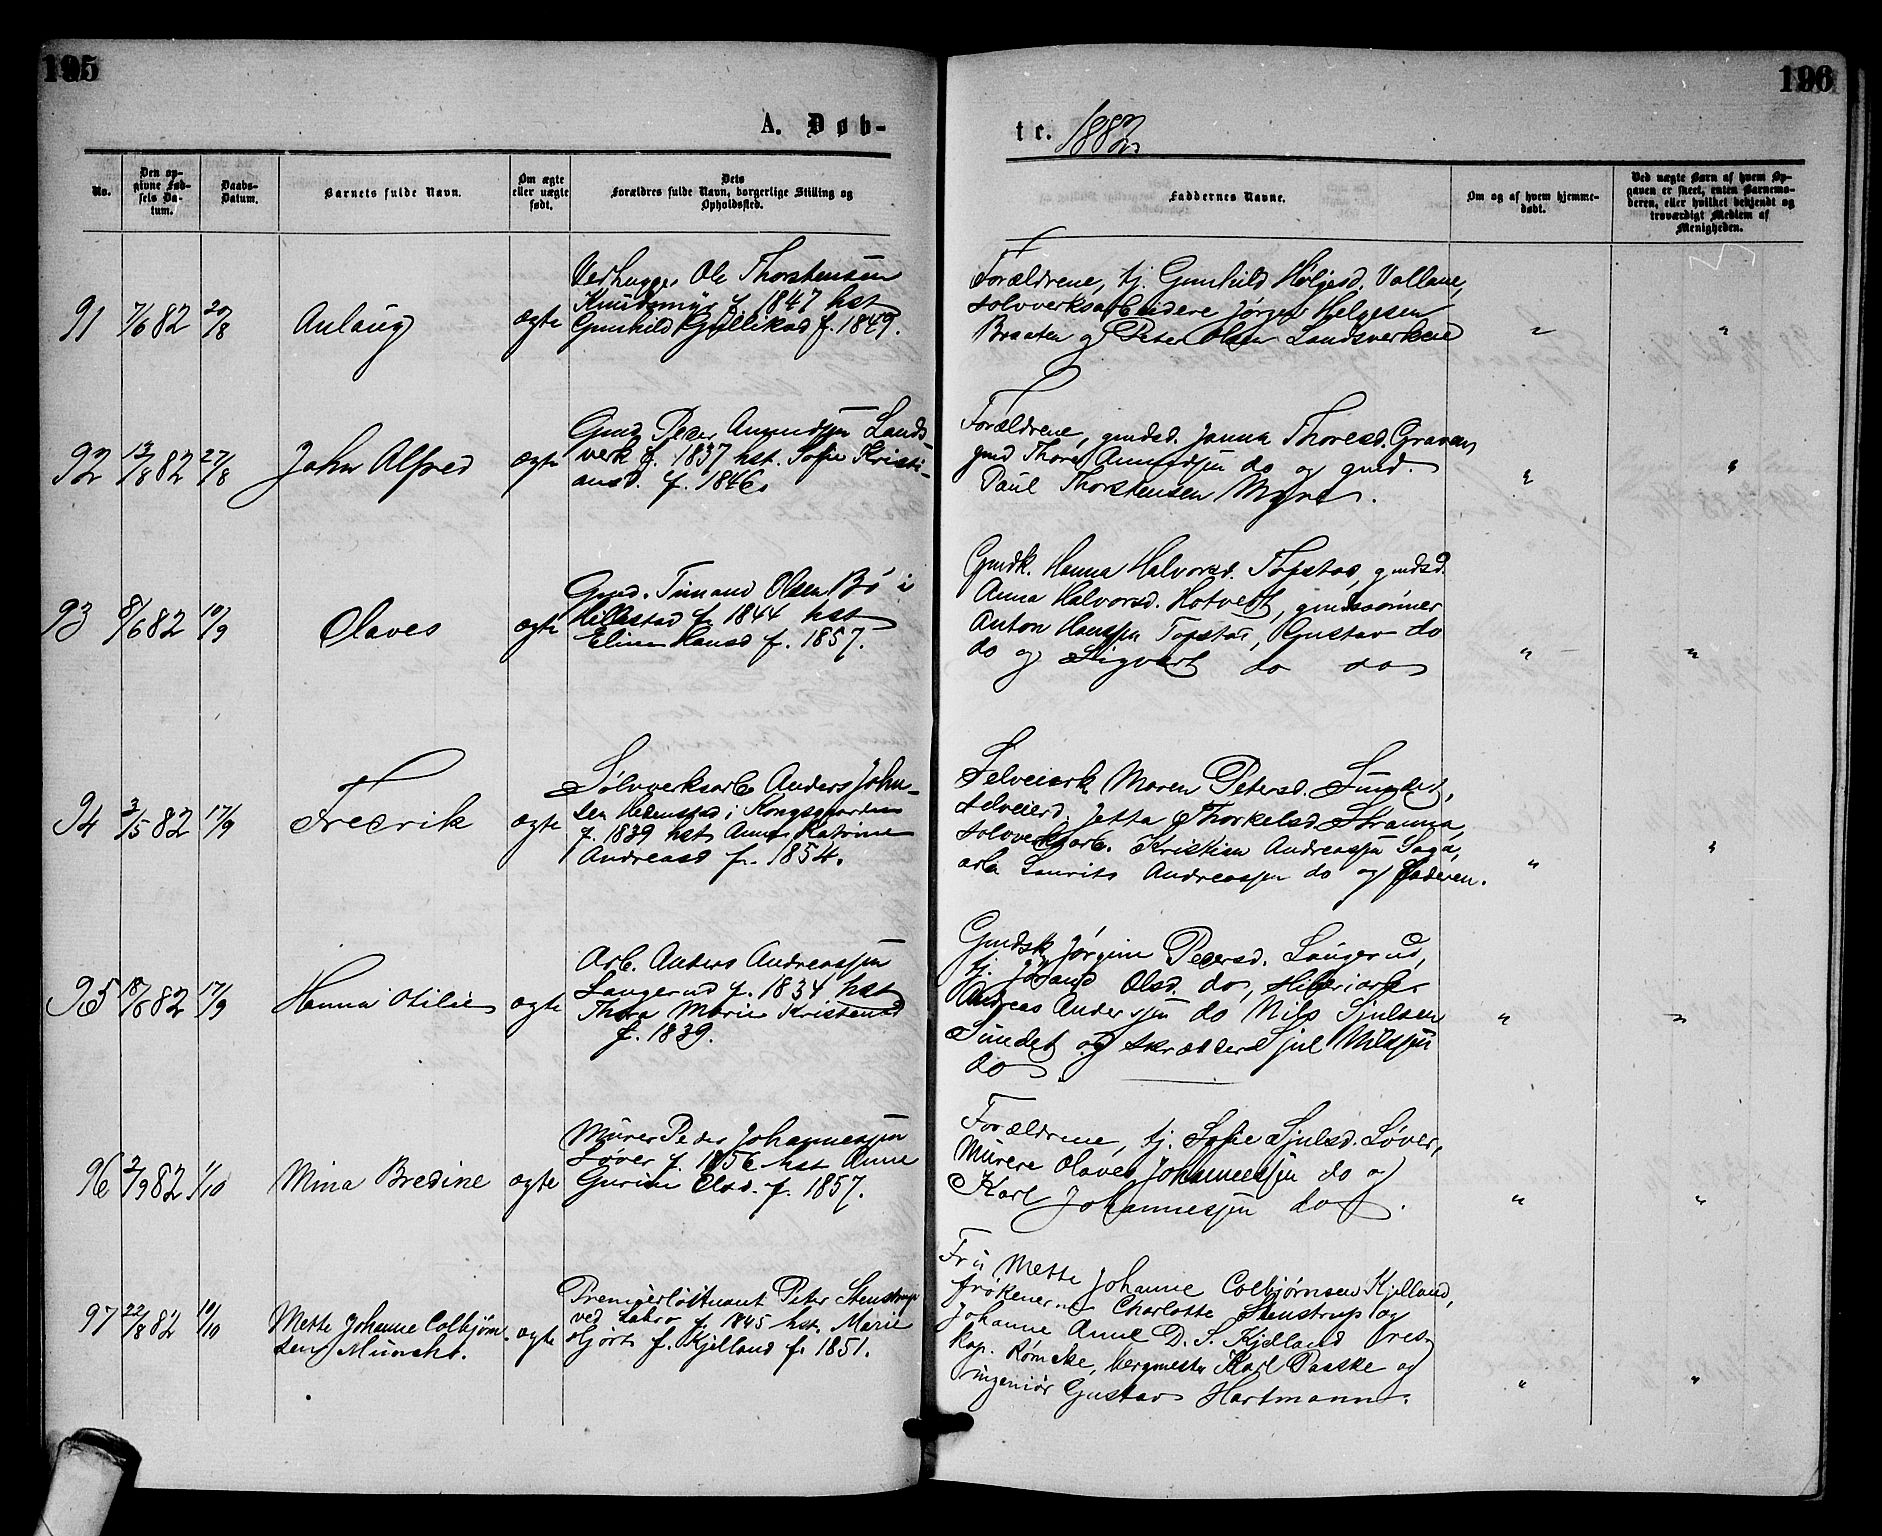 195
196
A. Døb-
te. 1882
No.
Den op-
givne Fød-
sels Da-
tum.
Daabs-
Datum.
Barnets fulde Navn.
Om ægte
eller uægte
født.
Dets
Forældres fulde Navn, borgerlige Stilling og
Opholdssted.
Faddernes Navne.
Om og af hvem hjemme-
døbt.
Ved uægte Barn af hvem Op-
gaven er skeet, enten Barnemo-
deren, eller hvilket bekjendt og
troværdigt Medlem af
Menigheden.
91 7/6 82 20/8 Aslaug ægte
Vedhugger Ole Thorstensen
Knutsmyr f. 1847 hst
Gunhild f. 1849.
Forældrene, tj. Gunhild Helgesd. Vollane,
sølvverksarbeidere Jørgen Helgesen
Braaten og Peter Olsen Landsverkene
" "
92 12/8 82 27/8 John Alfred ægte
Gmd Peder Amundsen Lands-
verk f. 1837 hst. Sofie Kristi-
ansd. f. 1846.
Forældrene, gmdsd. Janna Thoresd. Graven,
gmd Thore Amundsen do og gmd.
Paul Thorstensen Myre.
" "
93 8/6 82 10/9 Olaves ægte
Gmd. Timand Olsen Bø i
Hillestad f. 1844 hst
Eline Hansd f. 1857.
Gmdk. Hanna Halvorsd. Topstad, gmdsd.
Anna Halvorsd. Hotvedt, gmdssønner
Anton Hanssen Topstad, Gustav do
do og Sigvart do do
" "
94 3/5 82 17/9 Fredrik ægte
Sølvverksarb. Anders John-
sen Hedenstad i Kongsgaarden
f. 1839 hst Anne Katrine
Andreasd f. 1854.
Selveierk. Maren Petersd. Sundet,
selveierd. Jetta Thorkelsd. Stranna,
sølvverksarb. Kristian Andreassen Saga,
arb. Laurits Andreassen do og Faderen.
" "
95 18/6 82 17/9 Hanna Otilie ægte
Arb. Anders Andreassen
Langerud f. 1834 hst
Thora Marie Kristensd
f. 1839.
Gmdsk. Jørgine Pedersd. Langerud,
tj. Olsd. do,
Andreas Anderssen do Nils Sjulsen
Sundet og skrædder Sjul Nilssen
do
" "
96 2/9 82 1/10 Mina Bredine ægte
Murer Peder Johannessen
Løver f. 1856 hst Anne
Gurine Olsd. f. 1857.
Forældrene, tj. Sofie Sjulsd. Løver,
Murere Olaves Johannessen do og
Karl Johannessen do.
" "
97 22/8 82 10/10 Mette Johanne Colbjørn-
sen Münster. ægte
Premierløitnant Peter Stenstrup
ved Labro f. 1845 hst. Marie
Hjorth f. Kjelland f. 1851.
Fru Mette Johanne Colbjørnsen Kjelland,
frøkenerne Charlotte Stenstrup og
Johanne Anne D. S. Kjelland, res.
kap. Rømcke, bergmester Karl Paaske og
ingeniør Gustav Hartmann.
" "